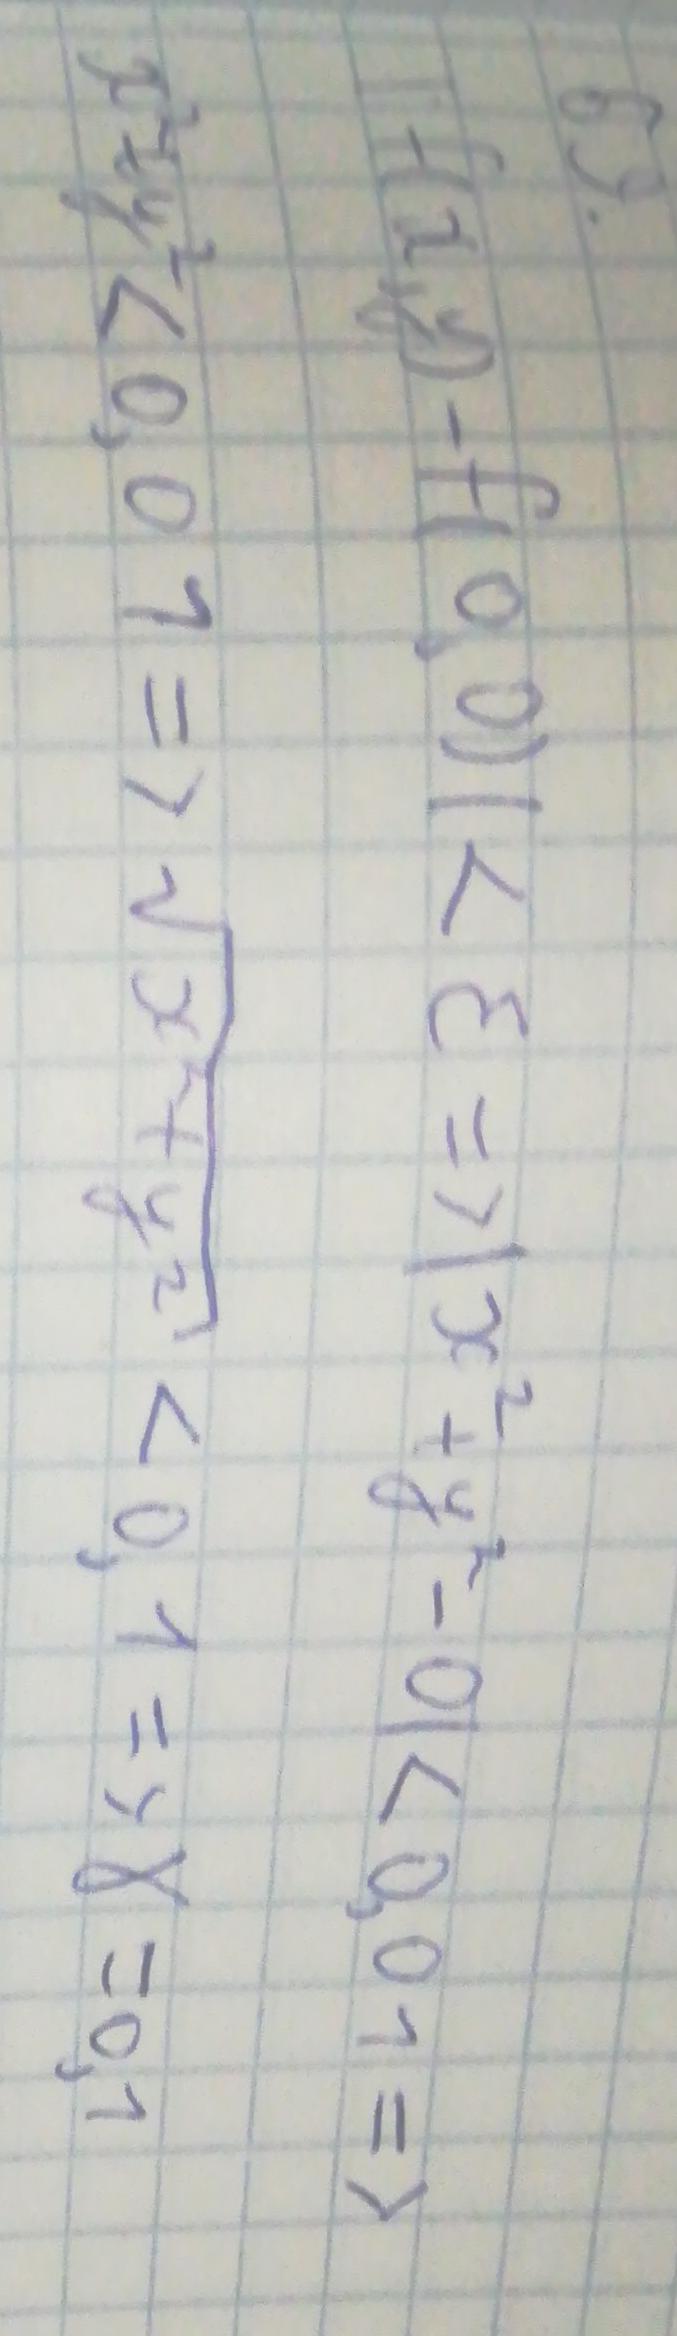 63.
|f(x,y)-f(0,0)|<ε=>|x²+y²-0|<0,01=>
x²+y²<0,01=>√x²+y²<0,1=>γ=0,1